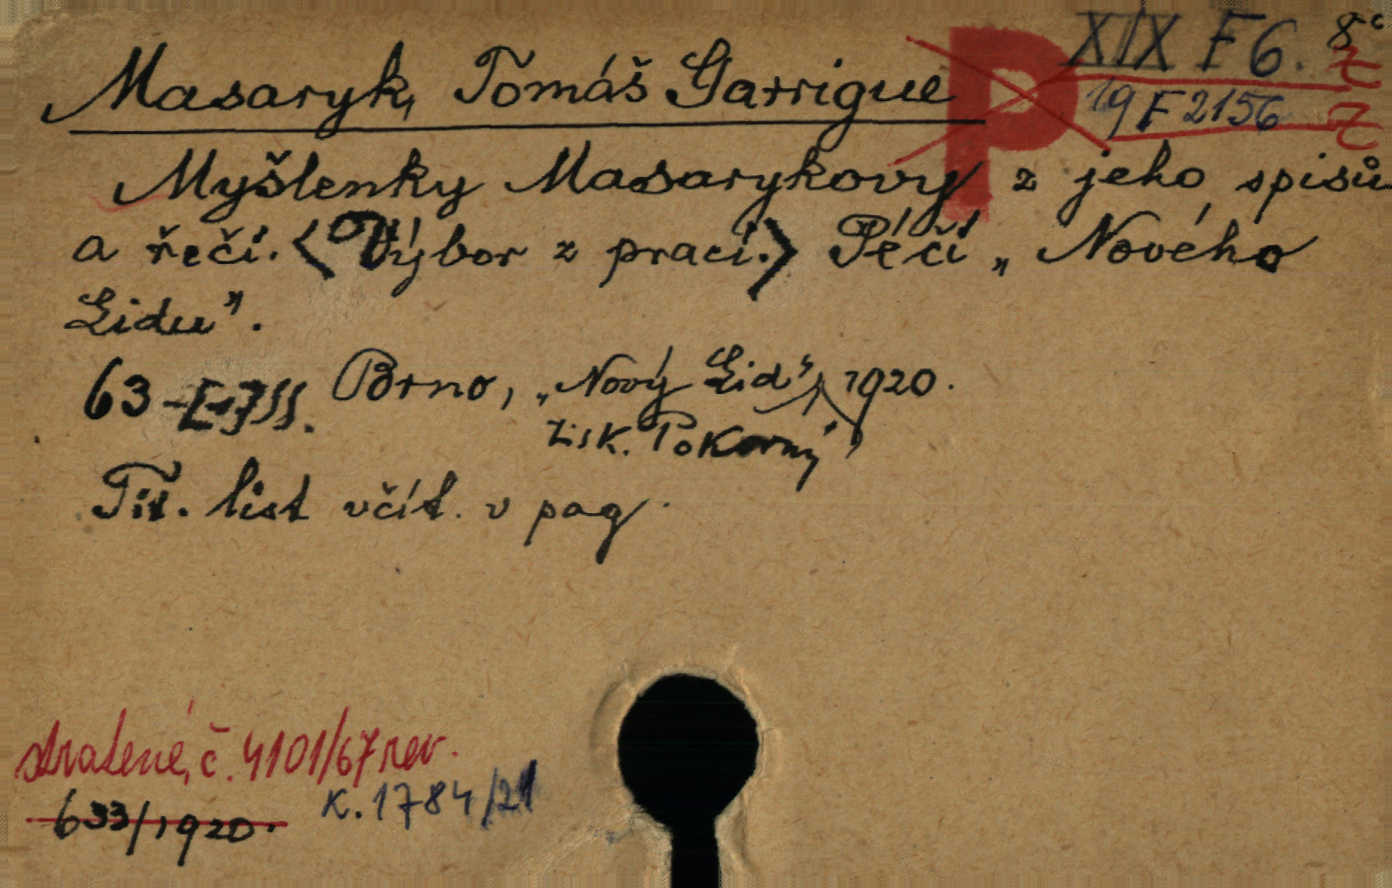 XIX F 6. 8°
Masaryk, Tomáš Garrigue P 19 F 2156
Myšlenky Masarykovy z jeho spisů
a řečí. <Výbor z prací.> Péčí „Nového
Lidu".
63 -[-1] s. Brno, „Nový Lid", 1920.
tisk. Pokorný,
Tit. list včít. v pag.
ztracené, č. 4101/67 rev.
633/1920. K. 1784/21